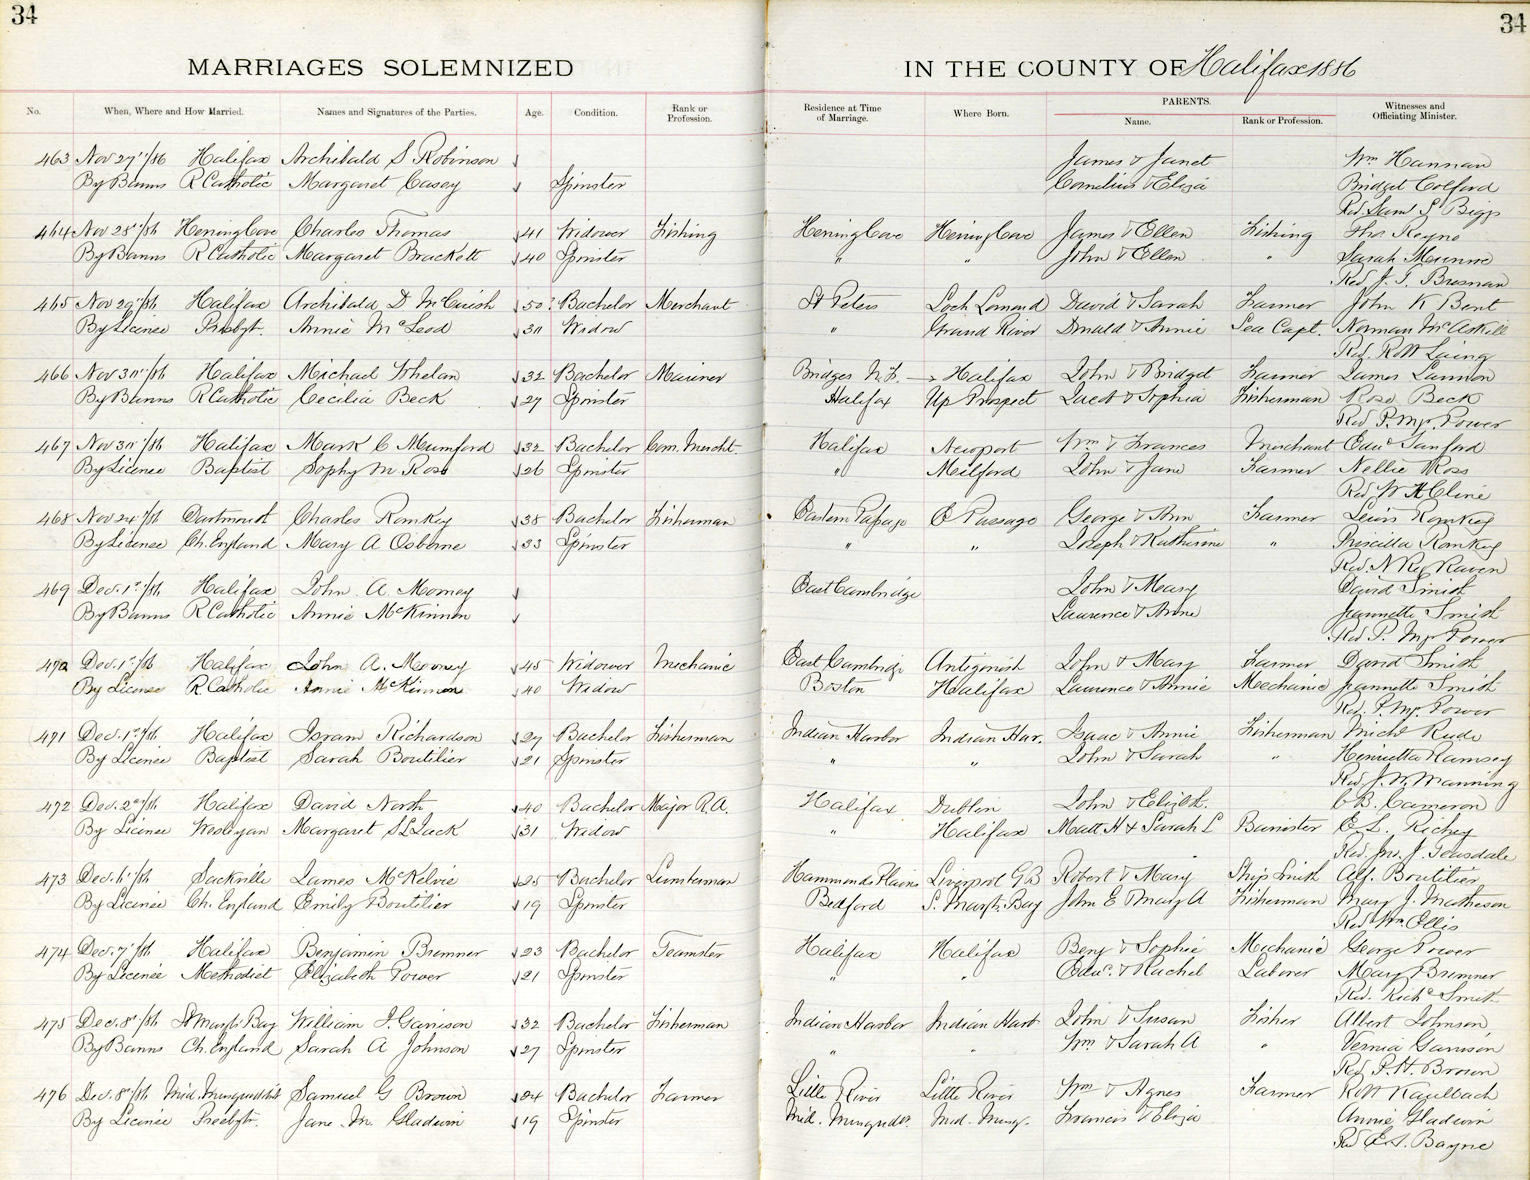 34
34
MARRIAGES SOLEMNIZED
IN THE COUNTY OF Halifax 1886
No. When, Where and How Married. Names and Signatures of the Parties. Age. Condition. Rank or Profession. Residence at Time of Marriage. Where Born. PARENTS. Name. Rank or Profession. Witnesses and Officiating Minister.
463 Nov 27"/86 Halifax Archibald S Robinson James & Janet Wm Hannan
By Banns R Catholic Margaret Casey Spinster Cornelius & Eliza Bridget Colford
Rev. Saml S Biggs
464 Nov 28"/86 Herring Cove Charles Thomas 41 Widower Fishing Herring Cove Herring Cove James & Ellen Fishing Thos
By Banns R Catholic Margaret Brackett 40 Spinster " " John & Ellen " Sarah Munroe
Rev J. T. Bresnan
465 Nov 29"/86 Halifax Archibald D McCuish 50 Bachelor Merchant St Peters Loch Lomond David & Sarah Farmer John K Bent
By Licence Presbyt. Annie McLeod 30 Widow " Grand River Donald & Annie Sea Capt. Norman McAskill
Rev. Robt Laing
466 Nov 30"/86 Halifax Michael Whelan 32 Bachelor Mariner Bridges N.F. Halifax John & Bridget Farmer James Lannon
By Banns R Catholic Cecilia Beck 27 Spinster Halifax Up Prospect Jacob & Sophia Fisherman Rose Beck
Rev P. Mp. Power
467 Nov 30"/86 Halifax Mark C Mumford 32 Bachelor Com. Mercht. Halifax Newport Wm & Frances Merchant Edwd Sanford
By Licence Baptist Sophy M Ross 26 Spinster " Milford John & Jane Farmer Nellie Ross
Rev W H Cline
468 Nov 24"/86 Dartmouth Charles Romkey 38 Bachelor Fisherman Eastern Passage E Passage George & Ann Farmer Levis Romkey
By Licence Ch. England Mary A Osborne 33 Spinster " " Joseph & Katherine " Priscilla Romkey
Rev. N Raven
469 Dec. 1st/86 Halifax John A. Mooney East Cambridge John & Mary David Smith
By Banns R Catholic Annie McKinnon Laurence & Anne Jeannette Smith
Rev. P. Mp Power
470 Dec. 1st/86 Halifax John A. Mooney 45 Widower Mechanic East Cambridg Antigonish John & Mary Farmer David Smith
By Licence R. Catholic Annie McKinnon 40 Widow Boston Halifax Laurence & Annie Mechanic Jeannette Smith
Rev. P. Mp. Power
471 Dec. 1st/86 Halifax Isram Richardson 27 Bachelor Fisherman Indian Harbor Indian Har. Isaac & Annie Fisherman Michl Rude
By Licence Baptist Sarah Boutilier 21 Spinster " " John & Sarah " Henrietta Ramsey
Rev J. W. Manning
472 Dec. 2nd/86 Halifax David North 40 Bachelor Major R.A. Halifax Dublin John & Elizbth. C B. Cameron
By Licence Wesleyan Margaret S L Jack 31 Widow " Halifax Matt H & Sarah L Barrister E L. Richey
Rev. Jno. J. Teasdale
473 Dec. 6"/86 Sackville James McKelvie 25 Bachelor Lumberman Hammonds Plains Liverpool G B Robert & Mary Ship Smith Alf. Boutilier
By Licence Ch. England Emily Boutilier 19 Spinster Bedford S. Margts. Bay John E & Mary A Fisherman Mary J. Matheson
Rev Wm Ellis
474 Dec. 7"/86 Halifax Benjamin Bremner 23 Bachelor Teamster Halifax Halifax Benj & Sophie Mechanic George Power
By Licence Methodist Elizabeth Power 21 Spinster " " Edwd. & Rachel Laborer Mary Bremner
Rev. Richd Smith
475 Dec. 8"/86 St Margts Bay William J. Garrison 32 Bachelor Fisherman Indian Harbor Indian Harb John & Susan Fisher Albert Johnson
By Banns Ch. England Sarah A Johnson 27 Spinster " " Wm & Sarah A " Vernia Garrison
Rev P. H. Brown
476 Dec. 8"/86 Mid. Musquodobt Samuel G Brown 24 Bachelor Farmer Little River Little River Wm & Agnes Farmer Robt Kaulbach
By Licence Presbyt. Jane M. Gladwin 19 Spinster Mid. Musquodo. Mid. Musq. Francis & Eliza Annie Gladwin
Rev E. S. Bayne